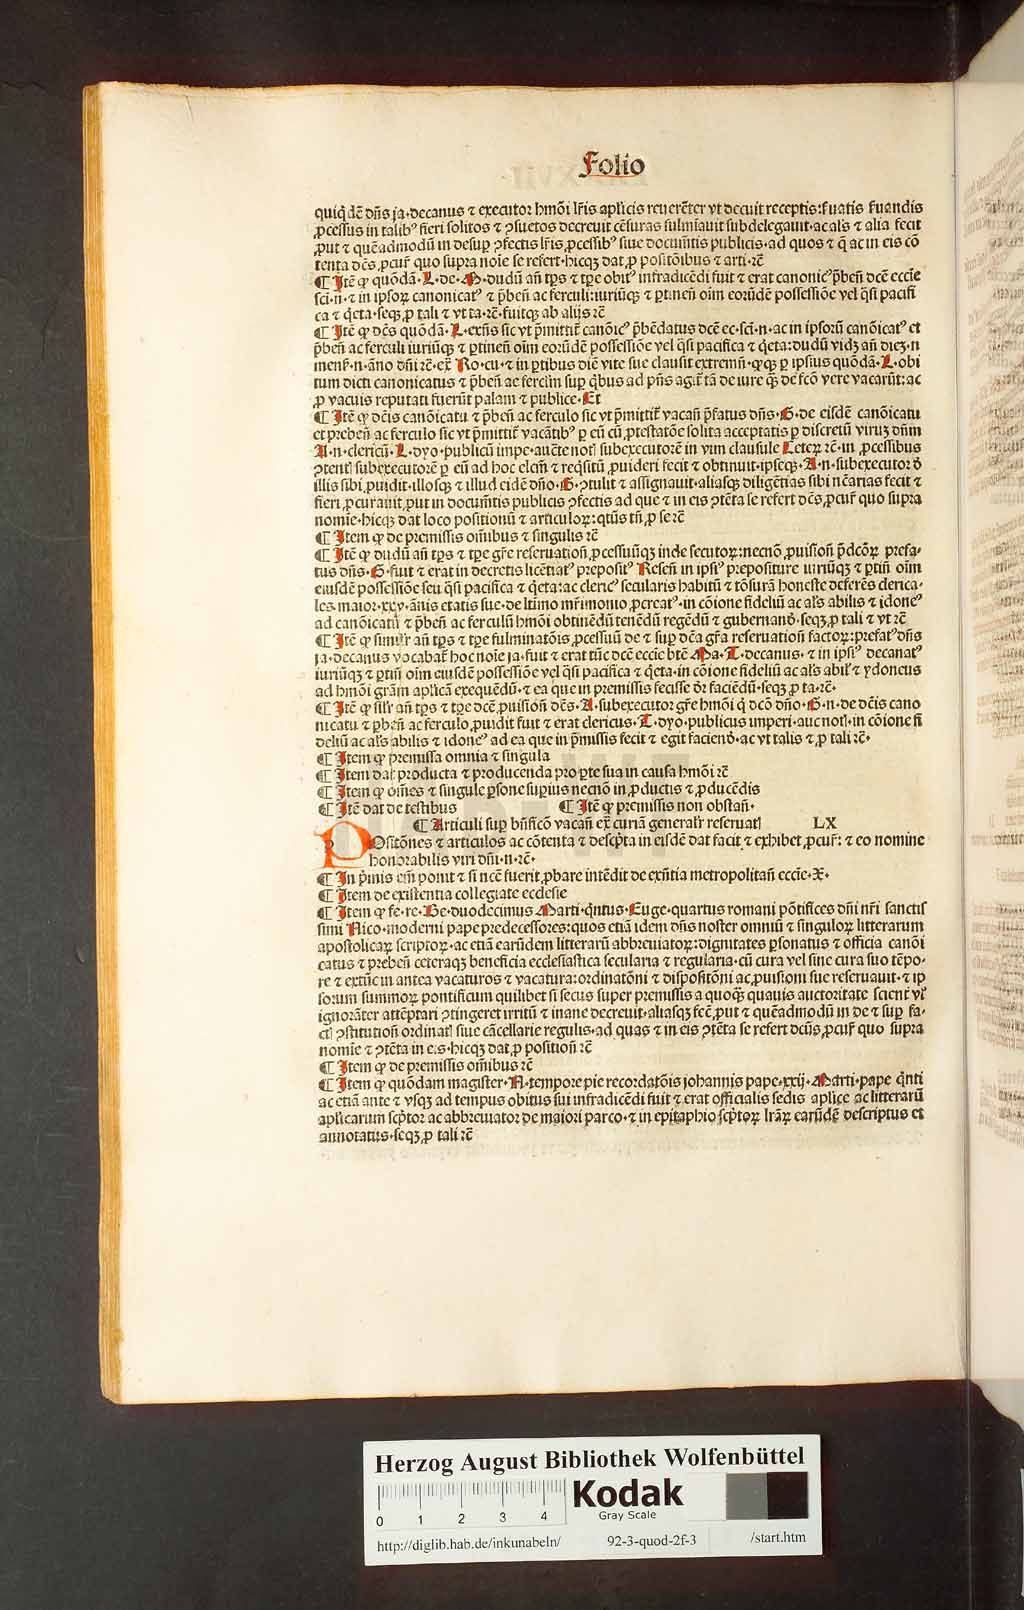 Folio
quiqdē dn̄s ja·decanus ⁊ executor hmōi lr̄is aplicis reuerēter vt decuit receptis: ẜuatis ẜuandis
ꝓcessus in talibꝰ fieri solitos ⁊ ꝯsuetos decreuit cēsuras fulmīauit subdelegauit·ac al's ⁊ alia fecit
ꝓut ⁊ quēadmodū in desup ꝯfectis lr̄is ꝓcessibꝰ siue documētis publicis·ad quos ⁊ q̄ ac in eis cō
tenta dc̄s ꝓcur̄ quo supra noīe se refert·hicqꝫ dat ꝓ positōibus ⁊ arti·rc̄
¶ Itē ꝙ quōdā·L·de·M·dudū an̄ tp̄s ⁊ tp̄e obitꝰ infradicēdi fuit ⁊ erat canonicꝰ p̄ben̄ dcē eccīe
sci·n·⁊ in ipsoꝝ canonicatꝰ ⁊ p̄ben̄ ac ferculi: iuriūqꝫ ⁊ ptinen̄ oīm eorūdē possessiōe vel q̄si pacifi
ca ⁊ q̄eta·seqꝫ ꝓ tali ⁊ vt ta·rc̄·fuitqꝫ ab alijs rc̄
¶ Itē ꝙ dc̄s quōdā·L·exn̄s sic vt p̄mittit̄ canōicꝰ p̄bēdatus dcē ec·sci·n·ac in ipsorū canōicatꝰ et
p̄ben̄ ac ferculi iuriūqꝫ ⁊ ꝑtinen̄ oīm eorūdē possessiōe vel q̄si pacifica ⁊ q̄eta: dudū vidꝫ an̄ dieꝫ·n
mens̄·n·āno dn̄i rc̄·ex̄ Ro·cu·⁊ in ꝑtibus diē vite sue clausit extremū·ꝙqꝫ ꝑ ipsius quōdā·L·obi
tum dicti canonicatus ⁊ p̄ben̄ ac ferclm̄ sup q̄bus ad pn̄s agit̄ tā de iure q̄ꝫ de fcō vere vacarūt: ac
ꝓ vacuis reputati fuerūt palam ⁊ publice·Et
¶ Itē ꝙ dcīs canōicatu ⁊ p̄ben̄ ac ferculo sic vt p̄mittit̄ vacan̄ p̄fatus dn̄s·G·de eisdē canōicatu
et preben̄ ac ferculo sic vt p̄mittit̄ vacātibꝰ ꝑ eū cū ꝓtestatōe solita acceptatis ꝑ discretū viruꝫ dn̄m
A·n·clericū·L·dyo·publicū impe·aucte not subexecutorē in vim clausule Ceteꝝ rc̄·in ꝓcessibus
ꝯtent subexecutorē ꝑ eū ad hoc elcm̄ ⁊ reqsitū ꝓuideri fecit ⁊ obtinuit·ipseqꝫ·A·n·subexecutor d̄
illis sibi ꝓuidit·illosqꝫ ⁊ illud eidē dn̄o·G·ꝯtulit ⁊ assignauit·aliasqꝫ diligētias sibi ncēarias fecit ⁊
fieri ꝓcurauit ꝓut in documētis publicis ꝯfectis ad que ⁊ in eis ꝯtēta se refert dc̄s ꝓcur̄ quo supra
nomīe·hicqꝫ dat loco positionū ⁊ articuloꝝ: qtūs tn̄ ꝓ se rc̄
¶ Item ꝙ de premissis omībus ⁊ singulis rc̄
¶ Itē ꝙ dudū an̄ tp̄s ⁊ tp̄e gr̄e reseruation̄ ꝓcessuūqꝫ inde secutoꝝ: necnō ꝓuision̄ p̄dcōꝝ prefa-
tus dn̄s·G·fuit ⁊ erat in decretis licētiatꝰ prepositꝰ Resen̄ in ipsꝰ prepositure iuriūqꝫ ⁊ ꝑtin̄ oīm
eiusdē possessiōe seu q̄si pacifica ⁊ q̄eta: ac clericꝰ secularis habitū ⁊ tōsurā honeste deferēs derica-
les maior·xxv·ānis etatis sue·de ltīmo mr̄imonio ꝓcreatꝰ·in cōione fideliū ac al's abilis ⁊ idoneꝰ
ad canonicatū ⁊ p̄ben̄ ac ferculū hmōi obtinēdū tenēdū regēdū ⁊ gubernand̄·seqꝫ ꝓ tali ⁊ vt rc̄
¶ Itē ꝙ simil'r an̄ tp̄s ⁊ tp̄e fulminatōis ꝓcessuū de ⁊ sup dcā gr̄a reseruation̄ factoꝝ: prefatꝰ dn̄s
ja·decanus vocabat̄ hoc noīe ja·fuit ⁊ erat tūc dcē eccīe btē Ma·T·decanus·⁊ in ipsiꝰ decanatꝰ
iuriūqꝫ ⁊ ꝑtin̄ oīm eiusdē possessiōe vel q̄si pacifica ⁊ q̄eta·in cōione fideliū ac al's abil' ⁊ ydoneus
ad hmōi grām aplicā exequēdū·⁊ ea que in premissis fecisse dr̄ faciēdū·seqꝫ ꝓ ta·rc̄·
¶ Itē ꝙ sil'r an̄ tp̄s ⁊ tp̄e dcē ꝓuision̄ dc̄s·A·subexecutor gr̄e hmōi q̄ dcō dn̄o·G·n·de dcīs cano
nicatu ⁊ p̄ben̄ ac ferculo ꝓuidit fuit ⁊ erat clericus·T·dyo·publicus imperi·auc not·in cōione fi
deliū ac al's abilis ⁊ idoneꝰ ad ea que in p̄missis fecit ⁊ egit faciend̄·ac vt talis ⁊ ꝓ tali rc̄·
¶ Item ꝙ premissa omnia ⁊ singula
¶ Item dat producta ⁊ producenda pro ꝑte sua in causa hmōi rc̄
¶ Item ꝙ om̄es ⁊ singule ꝑsone supius necnō in ꝓductis ⁊ ꝓducēdis
¶ Itē dat de testibus ¶ Itē ꝙ premissis non obstan̄·
¶ Articuli sup bn̄ficō vacan̄ ex̄ curiā general'r reseruat LX
POsitōnes ⁊ articulos ac cōtenta ⁊ descpta in eisdē dat facit ⁊ exhibet ꝓcur̄: ⁊ eo nomine
honorabilis viri dn̄i·n·rc̄·
¶ In p̄mis em̄ ponit ⁊ si ncē fuerit ꝓbare intēdit de exn̄tia metropolitan̄ eccīe·X·
¶ Item de existentia collegiate ecclesie
¶ Item ꝙ fe·re·Be·duodecimus Marti·q̄ntus·Euge·quartus romani pōtifices dn̄i nr̄i sanctis
simi Nico·moderni pape predecessores: quos etiā idem dn̄s noster omniū ⁊ singuloꝝ litterarum
apostolicaꝝ scriptoꝝ·ac etiā earūdem litterarū abbreuiatoꝝ: dignitates ꝑsonatus ⁊ officia canōi
catus ⁊ preben̄ ceteraqꝫ beneficia ecclesiastica secularia ⁊ regularia·cū cura vel sine cura suo tēpo-
re ⁊ extūc in antea vacaturos ⁊ vacatura: ordinatōni ⁊ dispositōni ac ꝓuisioni sue reseruauit·⁊ ip
sorum summoꝝ pontificum quilibet si secus super premissis a quoqꝫ quauis auctoritate scient̄ vl'
ignorāter attēptari ꝯtingeret irritū ⁊ inane decreuit·aliasqꝫ fec̄ ꝓut ⁊ quēadmodū in de ⁊ sup fa-
ct ꝯstitution̄ ordinat siue cācellarie regulis·ad quas ⁊ in eis ꝯtēta se refert dcūs ꝓcur̄ quo supra
nomīe ⁊ ꝯtēta in eis·hicqꝫ dat ꝓ position̄ rc̄
¶ Item ꝙ de premissis omībus rc̄
¶ Item ꝙ quōdam magister·N·tempore pie recordatōis johannis pape·xxij·Marti·pape q̄nti
ac etiā ante ⁊ vsqꝫ ad tempus obitus sui infradicēdi fuit ⁊ erat officialis sedis aplice ac litterarū
aplicarum scptor ac abbreuiator de maiori parco·⁊ in epitaphio scptoꝝ lrāꝝ earūdē descriptus et
annotatus·seqꝫ ꝓ tali rc̄
Herzog August Bibliothek Wolfenbüttel
0 1 2 3 4
Kodak
Gray Scale
http://diglib.hab.de/inkunabeln/ 92-3-quod-2f-3 /start.htm